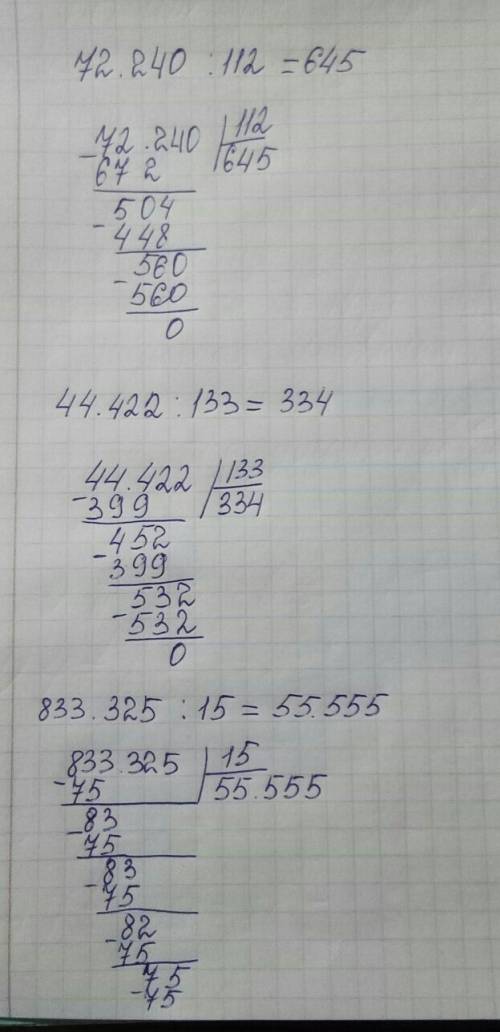 72.240 : 112 = 645
- 72.240 | 112
672 | 645
504
- 448
560
- 560
0
44.422 : 133 = 334
44.422 | 133
- 399 | 334
452
- 399
532
- 532
0
833.325 : 15 = 55.555
833.325 | 15
- 75 | 55.555
- 83
75
- 83
75
- 82
75
75
- 75